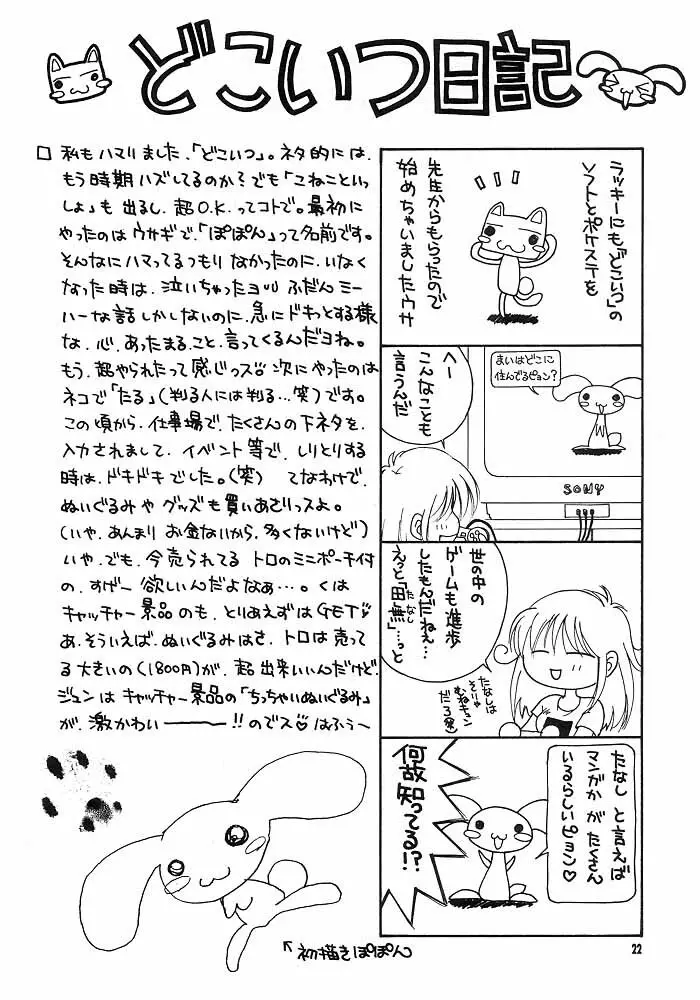 どこいつ日記
□ 私もハマりました、「どこいつ」。ネタ的には、
もう時期ハズしてるのか?でも「こねこといっ
しょ」も出るし、超O.K.ってコトで。最初に
やったのはウサギで、「ぽぽん」って名前です。
そんなにハマってるつもりなかったのに、いなく
なった時は、泣いちゃったヨ!ふだんミー
ハーな話しかしないのに、急にドキっとする様
な、心、あったまること、言ってくるんだヨね。
もう、超やられたって感じっス♡次にやったのは
ネコで「たる」(判る人には判る…笑)です。
この頃から、仕事場で、たくさんの下ネタを、
入力されまして、イベント等で、しりとりする
時は、ドキドキでした。(笑) てなわけで、
ぬいぐるみやグッズも買いあさりっスよ。
(いや、あんまりお金ないから、多くないけど)
いや、でも、今売られてるトロのミニポーチ付
の、すげー欲しいんだよなぁ…。くは
キャッチャー景品のも、とりあえずはGET♡
あ、そういえば、ぬいぐるみはさ、トロは売って
る大きいの(1800円)が、超出来いいんだけど、
ジュンはキャッチャー景品の「ちっちゃいぬいぐるみ」
が、激かわいー――!!のでス♡はふぅ〜
↖初描きぽぽん
ラッキーにも「どこいつ」の
ソフトとポケステを
先生からもらったので
始めちゃいましたウサ
まいはどこに
住んでるピョン?
へー
こんなことも
言うんだ
SONY
世の中の
ゲームも進歩
したもんだねぇ…
えっと「田無」…っと
たなし
たなしは
そりゃ
むねキュン
だろ(笑)
たなしと言えば
マンガかがたくさん
いるらしいピョン♡
何故知ってる!?
22